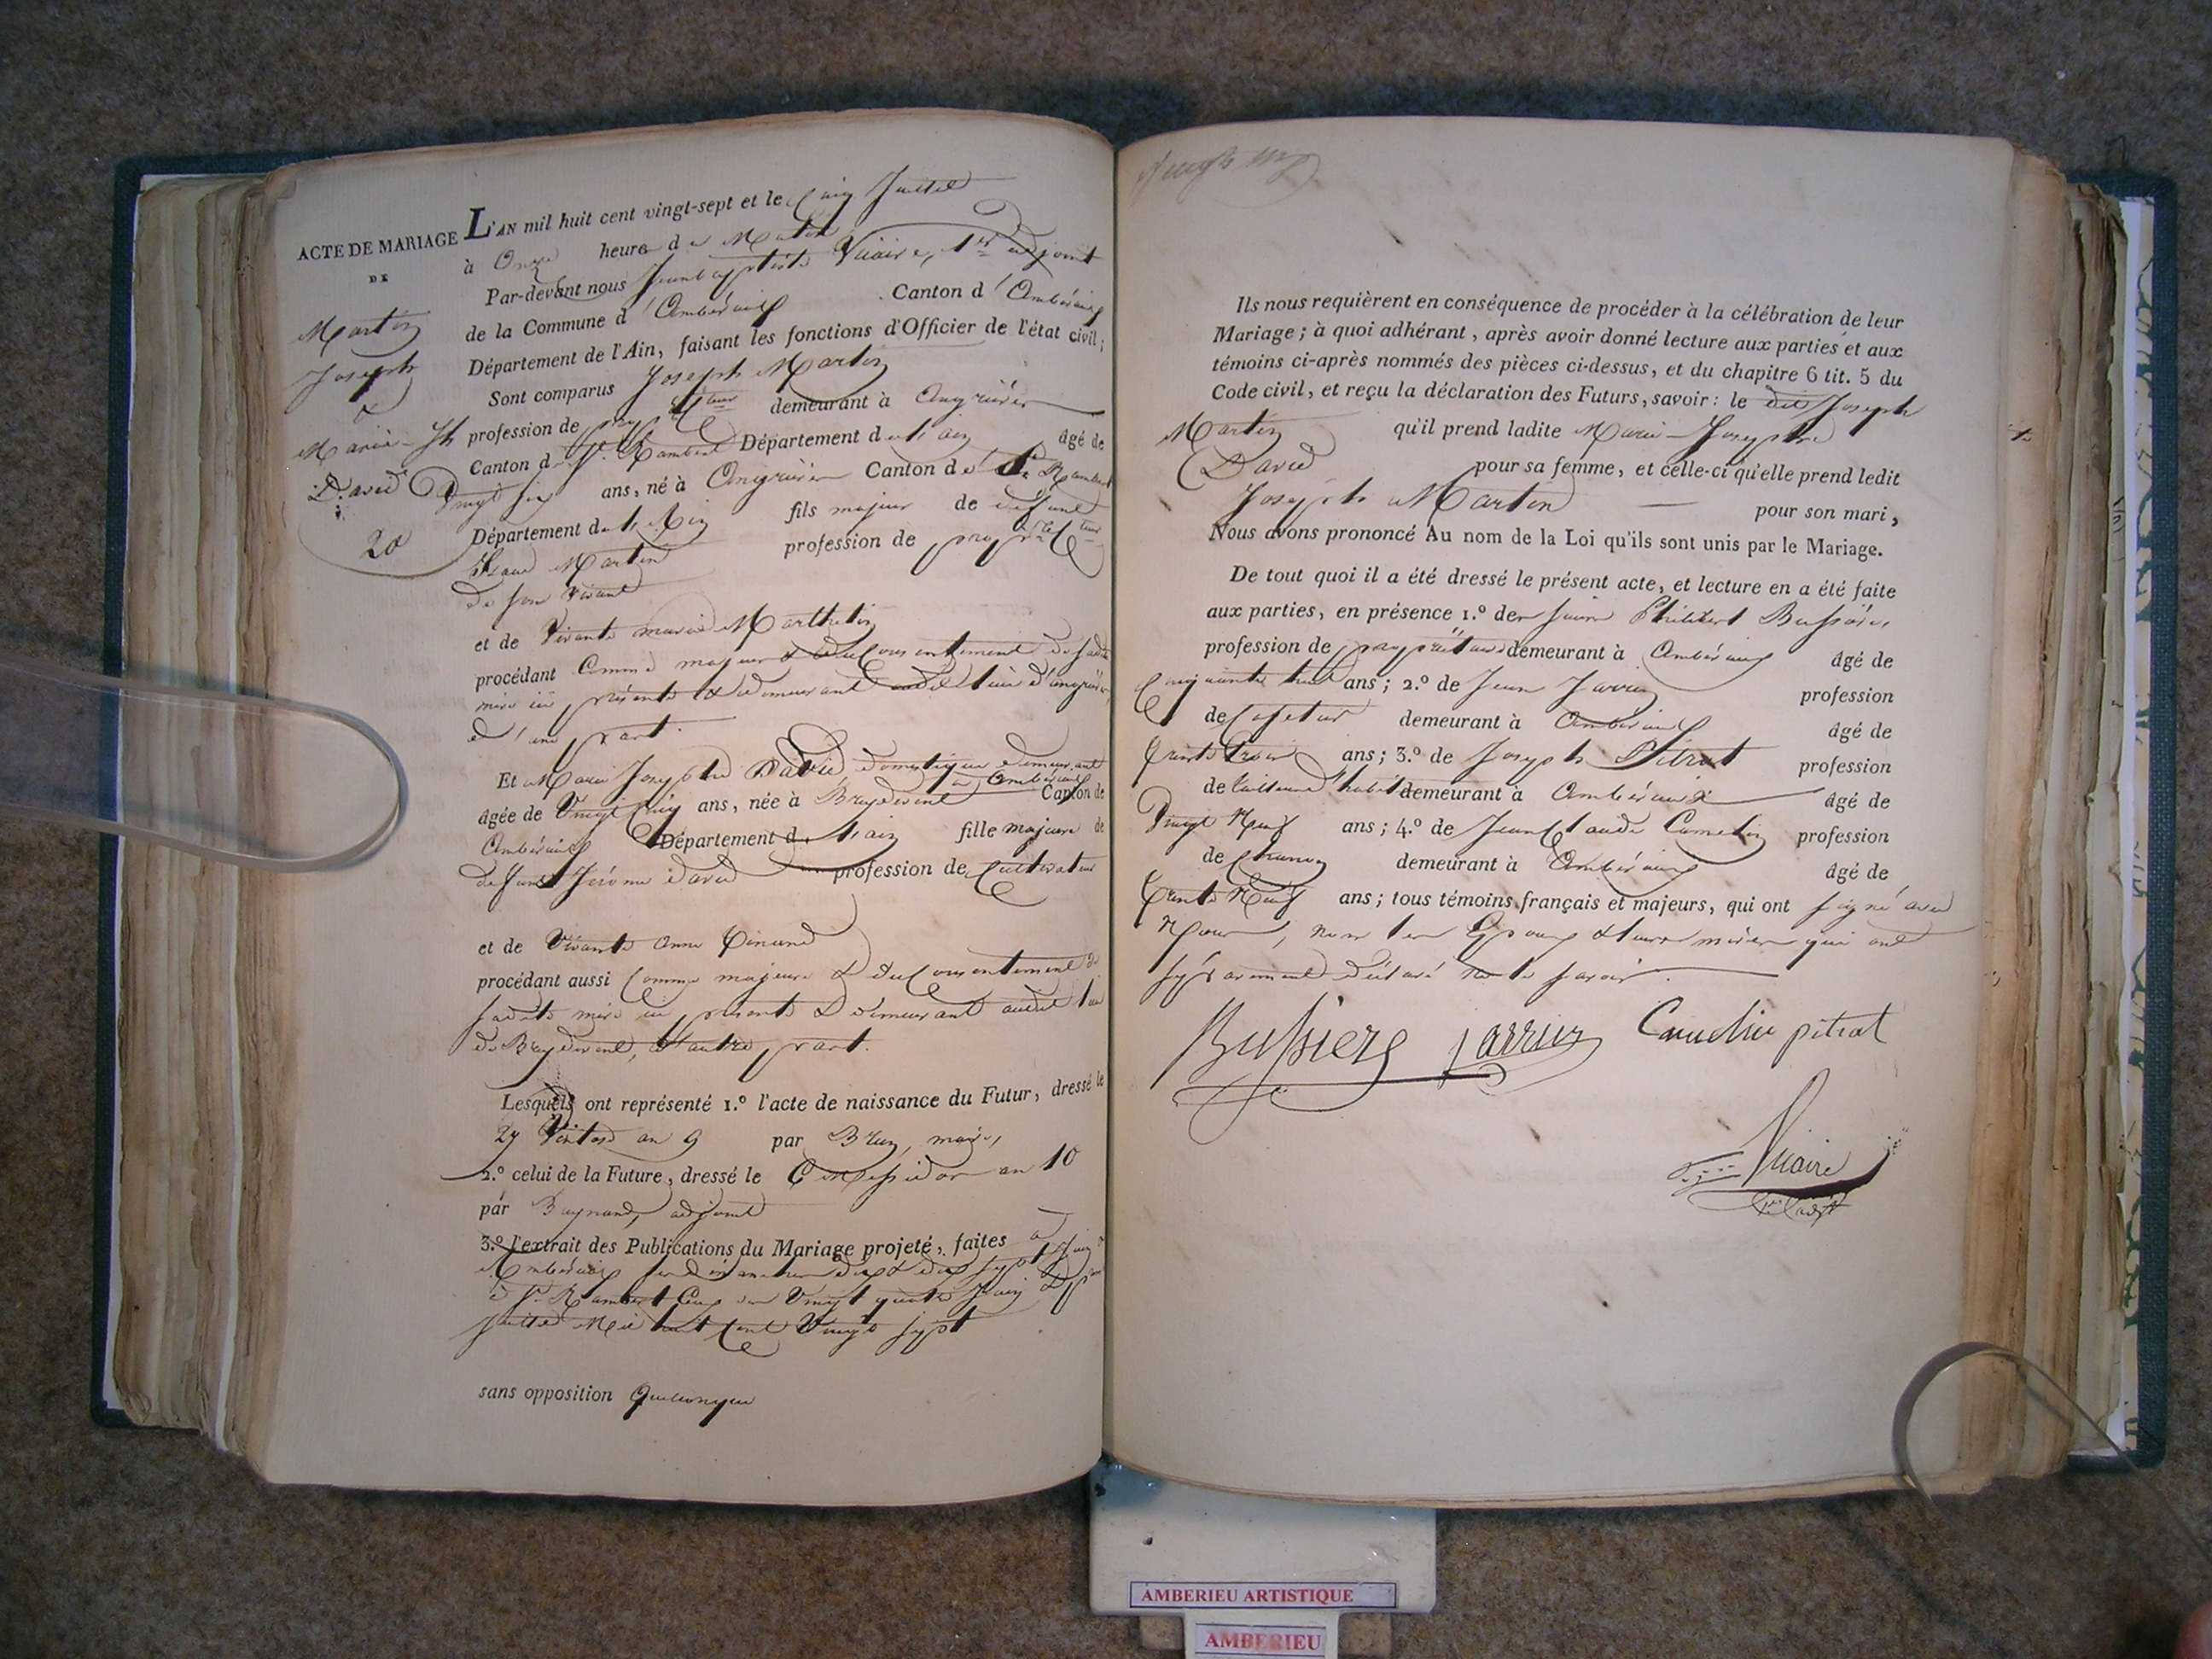 ACTE DE MARIAGE
DE
Martin
Joseph
&
Marie-Jh
David
20
L'AN mil huit cent vingt-sept et le Cinq Juillet
à Onze heures du Matin
Par-devant nous Jean baptiste Vicaire, 1er adjoint
de la Commune d'Ambérieux Canton d'Ambérieux
Département de l'Ain, faisant les fonctions d'Officier de l'état civil;
Sont comparus Joseph Martin
profession de demeurant à Angrières
Canton de St Rambert Département de l'ain âgé de
Vingt six ans, né à Angrières Canton de St Rambert
Département de l'Ain fils majeur de défunt
Martin profession de
de son vivant
et de Vivante marie Marthelin
procédant Comme majeur & du Consentement de sadite
mère ici présente & demeurant audit lieu d'angrières,
d'une part.
Et Marie Josephte David domestique demeurant
à Ambérieux
âgée de Vingt Cinq ans, née à Breydevent Canton de
Ambérieux Département de l'ain fille majeure de
defunt Jérôme David profession de Cultivateur
et de Vivante anne
procédant aussi Comme majeure & du Consentement de
sadite mère ici présente & demeurant audit lieu
de Breydevent, d'autre part.
Lesquels ont représenté 1.º l'acte de naissance du Futur, dressé le
27 Ventose an 9 par Brun, maire,
2.º celui de la Future, dressé le 6 Messidor an 10
par adjoint
3.º l'extrait des Publications du Mariage projeté, faites à
Ambérieux les dimanches dix & dix sept Juin &
à St. Rambert Ceux des Vingt quatre Juin & premier
juillet Mil huit Cent Vingt sept
sans opposition Quelconque
Ils nous requièrent en conséquence de procéder à la célébration de leur
Mariage; à quoi adhérant, après avoir donné lecture aux parties et aux
témoins ci-après nommés des pièces ci-dessus, et du chapitre 6 tit. 5 du
Code civil, et reçu la déclaration des Futurs, savoir: le dit Joseph
Martin qu'il prend ladite Marie-Josephte
David pour sa femme, et celle-ci qu'elle prend ledit
Joseph Martin pour son mari,
Nous avons prononcé Au nom de la Loi qu'ils sont unis par le Mariage.
De tout quoi il a été dressé le présent acte, et lecture en a été faite
aux parties, en présence 1.º de Philibert Bussière,
profession de propriétaire demeurant à Ambérieux âgé de
Cinquante huit ans; 2.º de Jean Jarrin profession
de Cafetier demeurant à Ambérieux âgé de
trente trois ans; 3.º de Joseph Pitrat profession
de tailleur d'habits demeurant à Ambérieux âgé de
Vingt Neuf ans; 4.º de Jean Claude profession
de Charron demeurant à Ambérieux âgé de
trente Neuf ans; tous témoins français et majeurs, qui ont signé avec
Nous, non les Epoux & leurs mères qui ont
séparément déclaré ne le savoir.
Bussiere Jarrin pitrat
Vicaire
1er adjt
AMBERIEU ARTISTIQUE
AMBERIEU